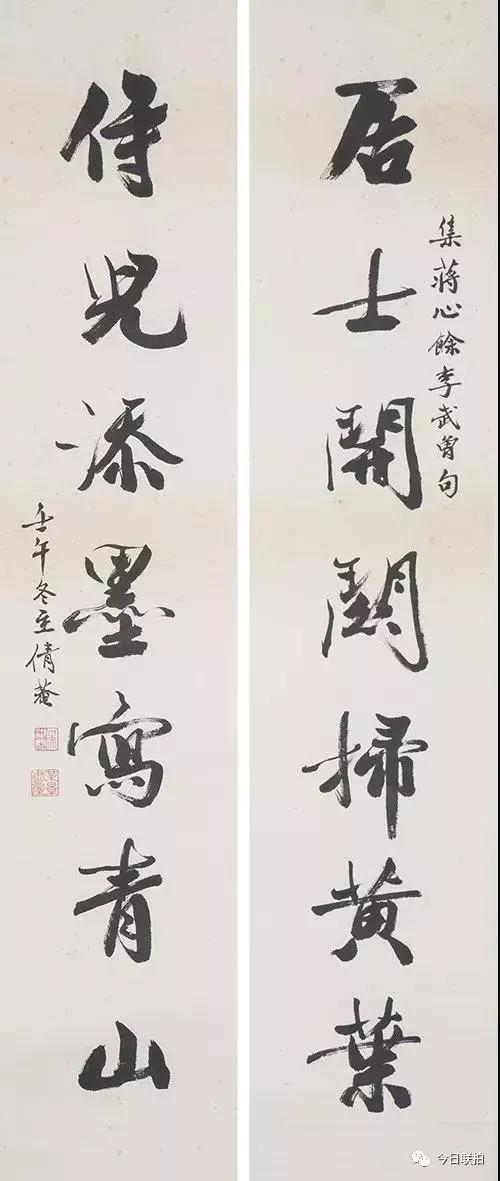 居士開關掃黃葉
集蔣心餘李武曾句
侍兒添墨寫青山
壬午冬至倩菴
今日联拍